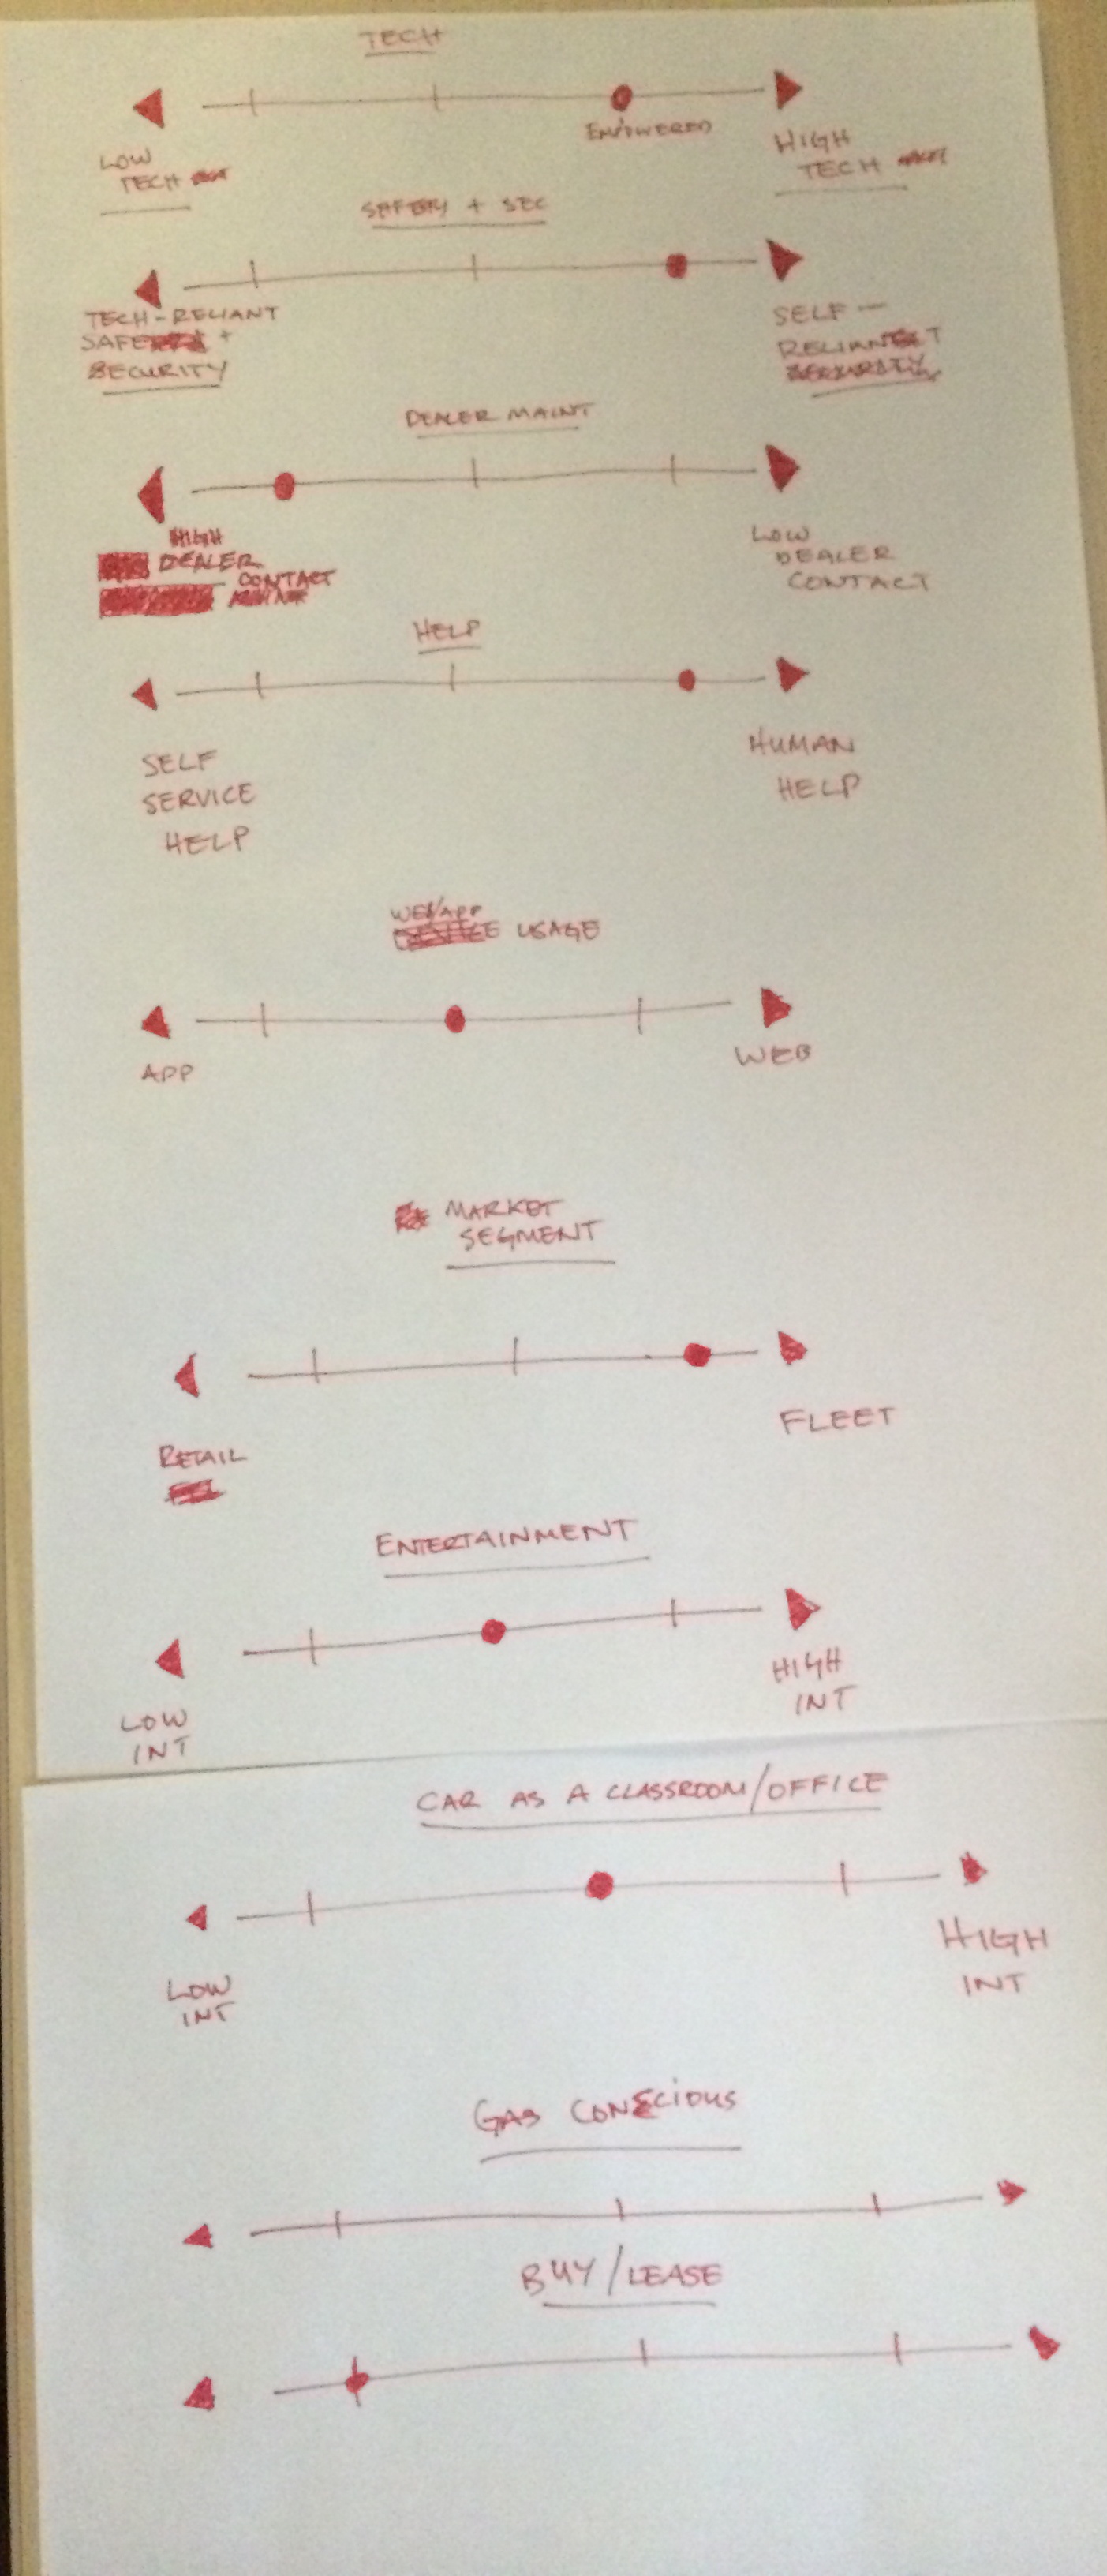 TECH
EMPOWERED
LOW
TECH
HIGH
TECH
SAFETY + SEC
TECH-RELIANT
SAFE +
SECURITY
SELF-
RELIANT
DEALER MAINT
HIGH
DEALER
CONTACT
LOW
DEALER
CONTACT
HELP
SELF
SERVICE
HELP
HUMAN
HELP
WEB/APP
USAGE
APP
WEB
MARKET
SEGMENT
RETAIL
FLEET
ENTERTAINMENT
LOW
INT
HIGH
INT
CAR AS A CLASSROOM/OFFICE
LOW
INT
HIGH
INT
GAS CONSCIOUS
BUY/LEASE